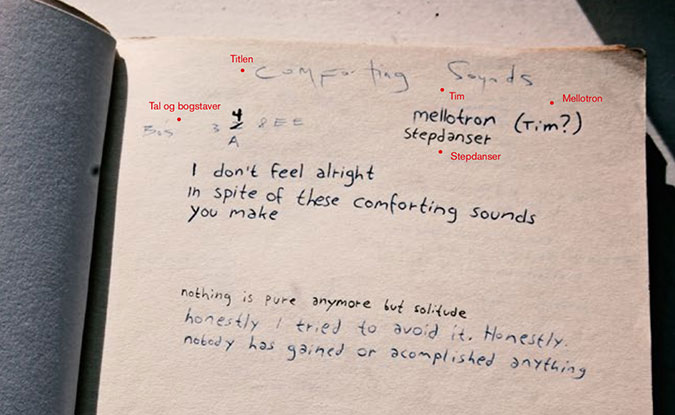 Titlen
Comforting Sounds
Tim
Mellotron
Tal og bogstaver
mellotron (Tim?)
Stepdanser
3 4 8 E E
A
Stepdanser
I don't feel alright
in spite of these comforting sounds
you make
nothing is pure anymore but solitude
honestly I tried to avoid it. Honestly.
nobody has gained or acomplished anything